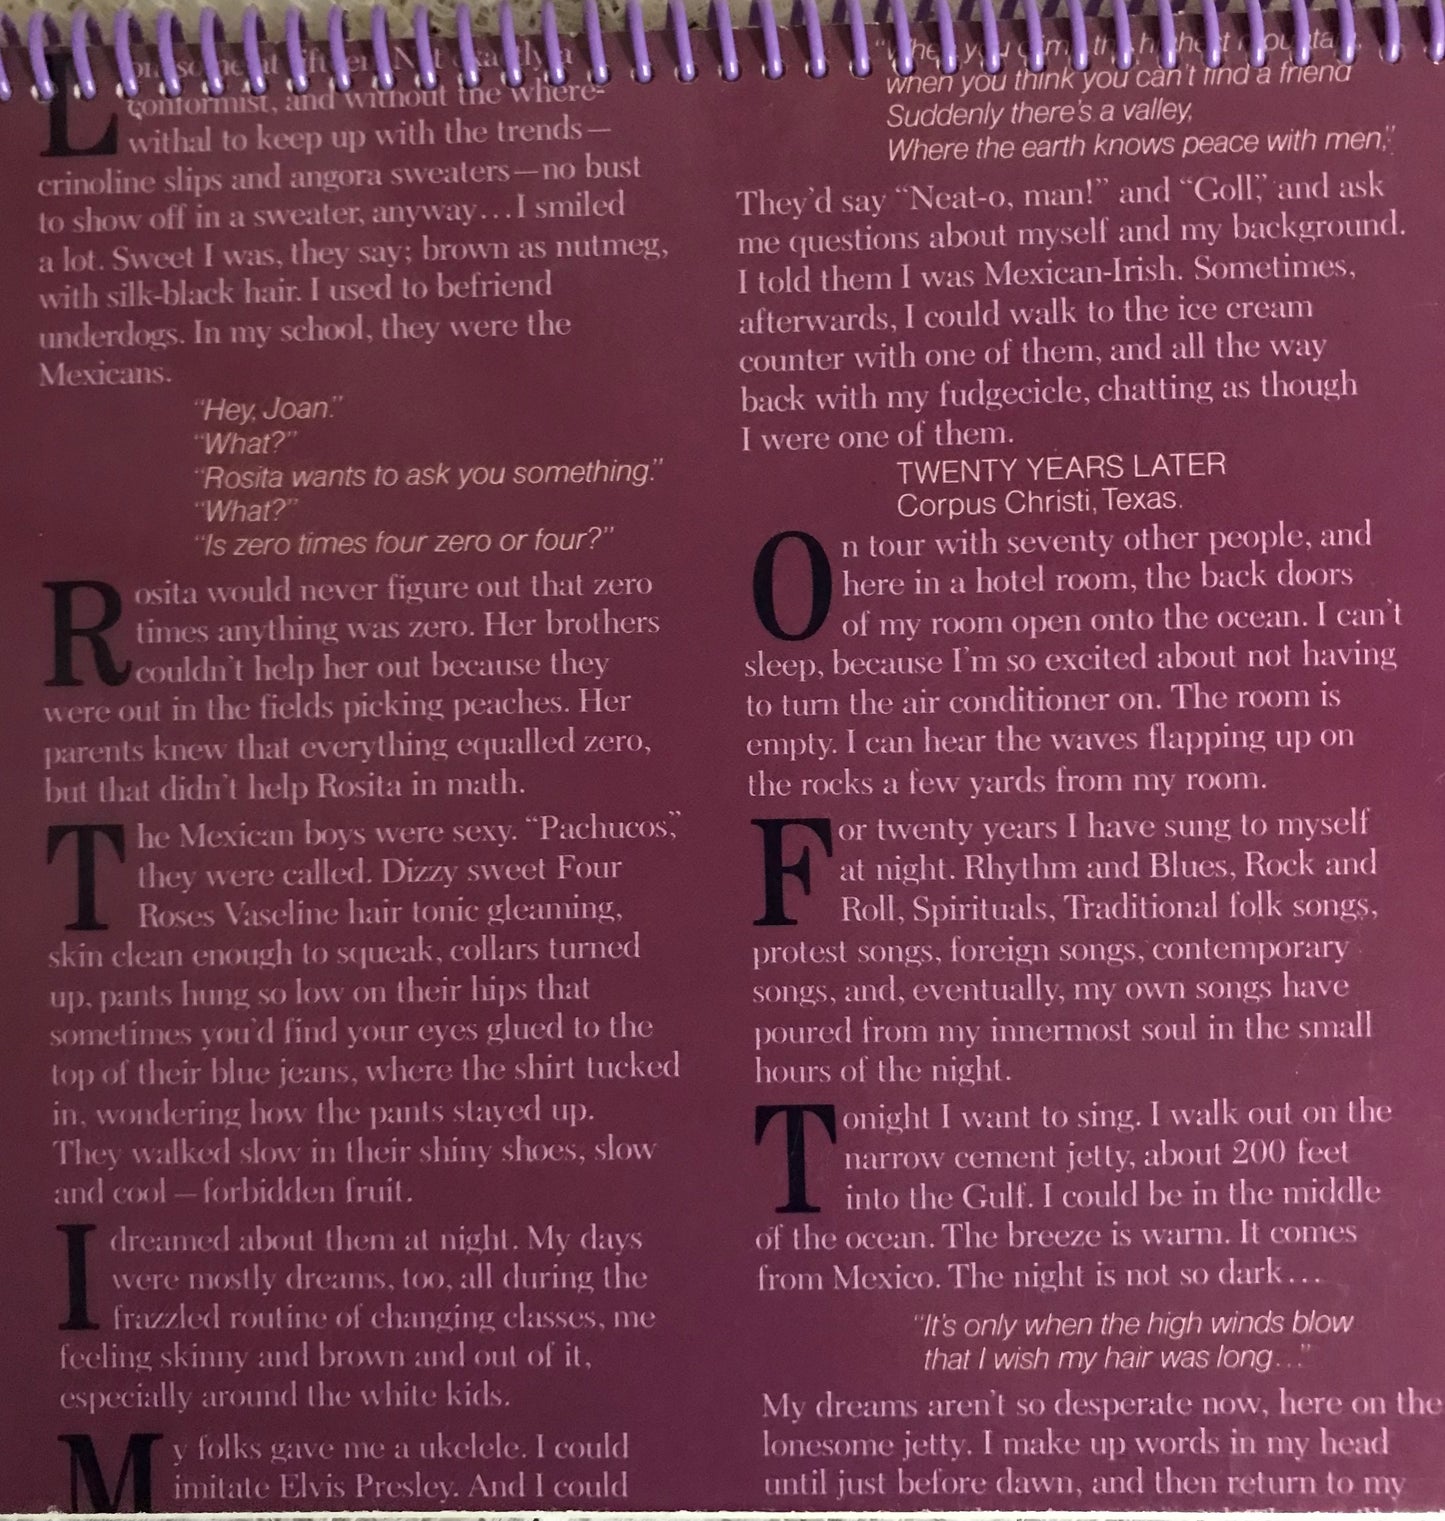 conformist, and without the where-
withal to keep up with the trends—
crinoline slips and angora sweaters—no bust
to show off in a sweater, anyway...I smiled
a lot. Sweet I was, they say; brown as nutmeg,
with silk-black hair. I used to befriend
underdogs. In my school, they were the
Mexicans.
"Hey, Joan."
"What?"
"Rosita wants to ask you something."
"What?"
"Is zero times four zero or four?"
Rosita would never figure out that zero
times anything was zero. Her brothers
couldn't help her out because they
were out in the fields picking peaches. Her
parents knew that everything equalled zero,
but that didn't help Rosita in math.
The Mexican boys were sexy. "Pachucos,"
they were called. Dizzy sweet Four
Roses Vaseline hair tonic gleaming,
skin clean enough to squeak, collars turned
up, pants hung so low on their hips that
sometimes you'd find your eyes glued to the
top of their blue jeans, where the shirt tucked
in, wondering how the pants stayed up.
They walked slow in their shiny shoes, slow
and cool—forbidden fruit.
I dreamed about them at night. My days
were mostly dreams, too, all during the
frazzled routine of changing classes, me
feeling skinny and brown and out of it,
especially around the white kids.
My folks gave me a ukelele. I could
imitate Elvis Presley. And I could
when you think you can't find a friend
Suddenly there's a valley,
Where the earth knows peace with men,"
They'd say "Neat-o, man!" and "Goll," and ask
me questions about myself and my background.
I told them I was Mexican-Irish. Sometimes,
afterwards, I could walk to the ice cream
counter with one of them, and all the way
back with my fudgecicle, chatting as though
I were one of them.
TWENTY YEARS LATER
Corpus Christi, Texas.
On tour with seventy other people, and
here in a hotel room, the back doors
of my room open onto the ocean. I can't
sleep, because I'm so excited about not having
to turn the air conditioner on. The room is
empty. I can hear the waves flapping up on
the rocks a few yards from my room.
For twenty years I have sung to myself
at night. Rhythm and Blues, Rock and
Roll, Spirituals, Traditional folk songs,
protest songs, foreign songs, contemporary
songs, and, eventually, my own songs have
poured from my innermost soul in the small
hours of the night.
Tonight I want to sing. I walk out on the
narrow cement jetty, about 200 feet
into the Gulf. I could be in the middle
of the ocean. The breeze is warm. It comes
from Mexico. The night is not so dark...
"It's only when the high winds blow
that I wish my hair was long..."
My dreams aren't so desperate now, here on the
lonesome jetty. I make up words in my head
until just before dawn, and then return to my